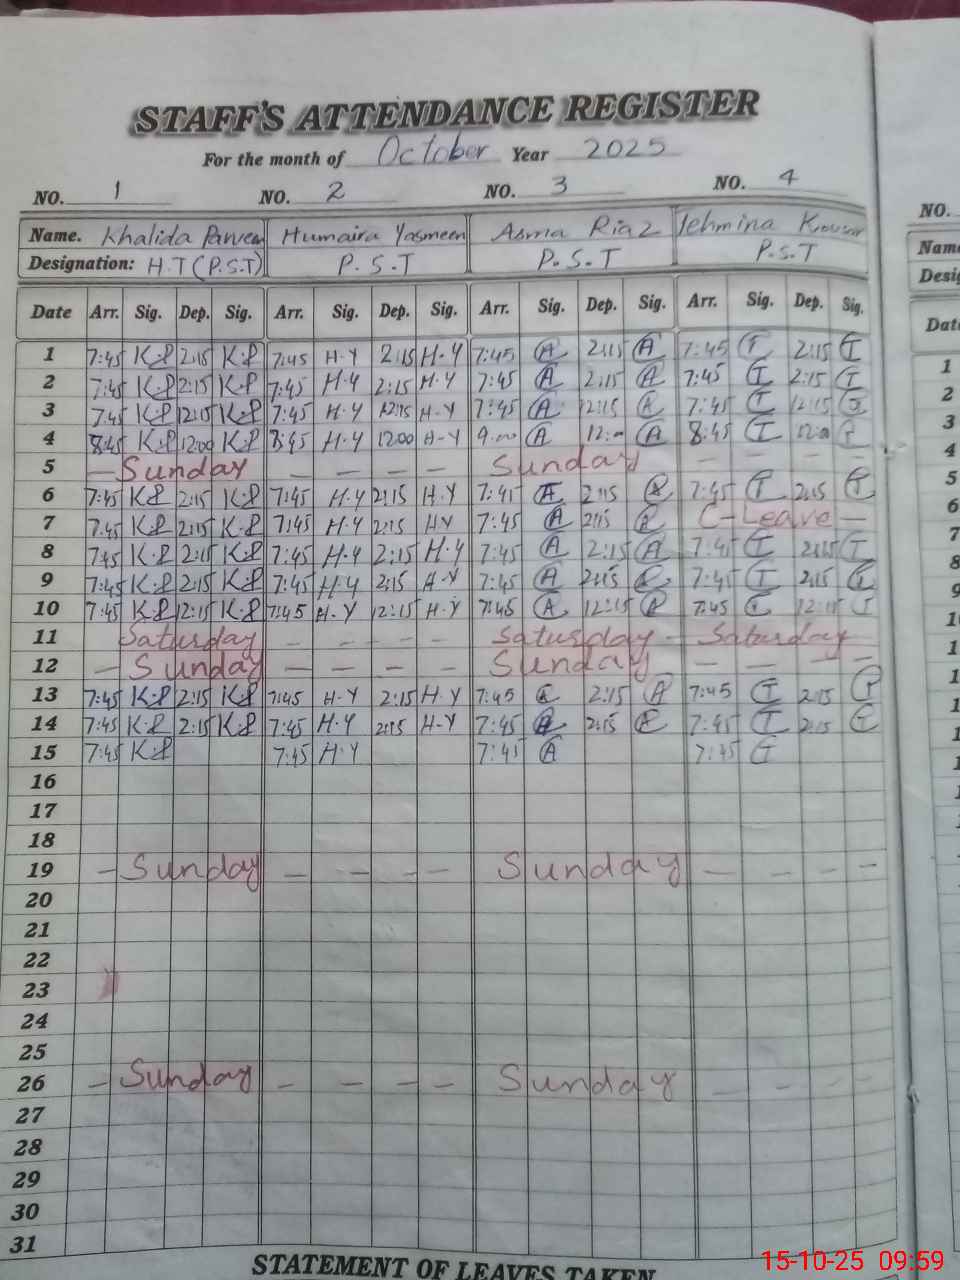 STAFF'S ATTENDANCE REGISTER
For the month of October Year 2025
NO. 1 NO. 2 NO. 3 NO. 4
Name. Khalida Parveen Humaira Yasmeen Asma Riaz Tehmina
Designation: H.T (P.S.T) P.S.T P.S.T P.S.T
Date Arr. Sig. Dep. Sig. Arr. Sig. Dep. Sig. Arr. Sig. Dep. Sig. Arr. Sig. Dep. Sig.
1 7:45 K.P 2:15 K.P 7:45 H.Y 2:15 H.Y 7:45 A 2:15 A 7:45 T 2:15 T
2 7:45 K.P 2:15 K.P 7:45 H.Y 2:15 H.Y 7:45 A 2:15 A 7:45 T 2:15 T
3 7:45 K.P 12:15 K.P 7:45 H.Y 12:15 H.Y 7:45 A 12:15 A 7:45 T 12:15 T
4 8:45 K.P 12:00 K.P 8:45 H.Y 12:00 H-Y 9:00 A 12:00 A 8:45 T 12:00 T
5 — Sunday — — — — Sunday — — — —
6 7:45 K.P 2:15 K.P 7:45 H.Y 2:15 H.Y 7:45 A 2:15 A 7:45 T 2:15 T
7 7:45 K.P 2:15 K.P 7:45 H.Y 2:15 H.Y 7:45 A 2:15 A C-Leave —
8 7:45 K.P 2:15 K.P 7:45 H.Y 2:15 H.Y 7:45 A 2:15 A 7:45 T 2:15 T
9 7:45 K.P 2:15 K.P 7:45 H.Y 2:15 H.Y 7:45 A 2:15 A 7:45 T 2:15 T
10 7:45 K.P 12:15 K.P 7:45 H.Y 12:15 H.Y 7:45 A 12:15 A 7:45 T 12:15 T
11 Saturday — — — — Saturday — Saturday —
12 — Sunday — — — — Sunday — — — —
13 7:45 K.P 2:15 K.P 7:45 H.Y 2:15 H.Y 7:45 A 2:15 A 7:45 T 2:15 T
14 7:45 K.P 2:15 K.P 7:45 H.Y 2:15 H-Y 7:45 A 2:15 A 7:45 T 2:15 T
15 7:45 K.P 7:45 H.Y 7:45 A 7:45 T
16
17
18
19 — Sunday — — — — Sunday — — — —
20
21
22
23
24
25
26 — Sunday — — — — Sunday — — — —
27
28
29
30
31
STATEMENT OF LEAVES TAKEN
NO.
Name
Desig
Date
1
2
3
4
5
6
7
8
9
15-10-25 09:59